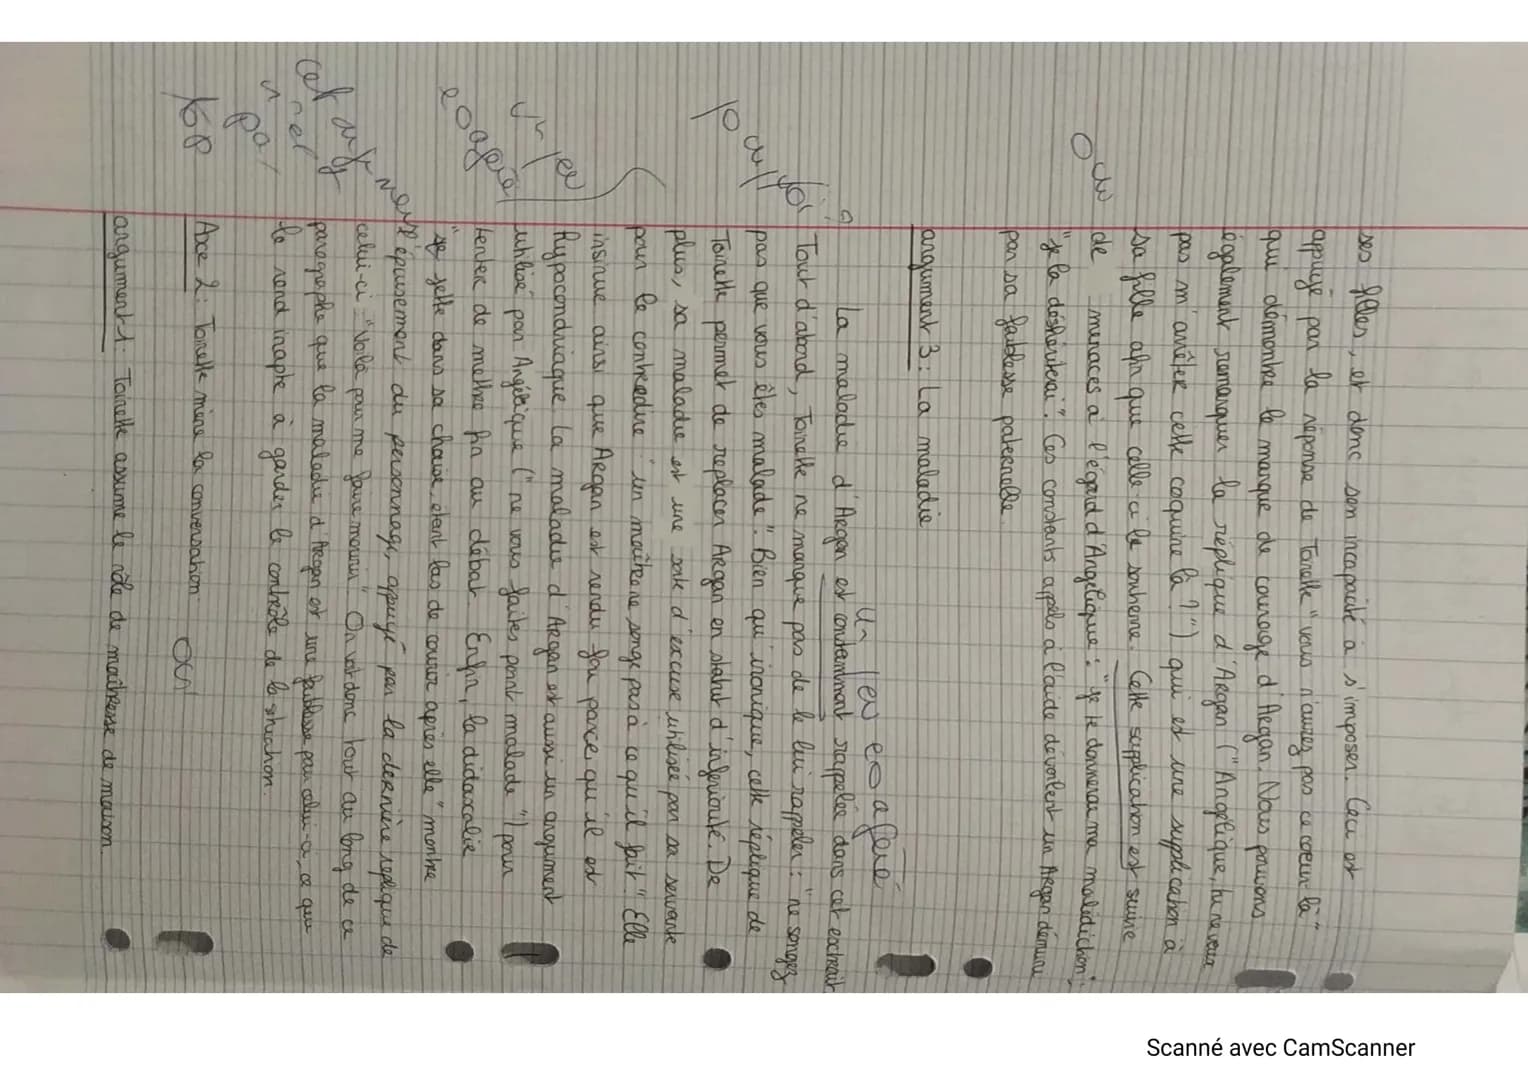 ses filles, et donc son incapacité à s'imposer. Ceci est
appuyé par la réponse de Toinette "vous n'aurez pas ce coeur-là"
qui démontre le manque de courage d'Argan. Nous pouvons
également remarquer la réplique d'Argan ("Angélique, tu ne veux
pas m'arrêter cette coquine là ?") qui est une supplication à
sa fille afin que celle-ci le soutienne. Cette supplication est suivie
de menaces à l'égard d'Angélique : "je te donnerai ma malédiction",
"je la déshériterai". Ces constants appels à l'aide dévoilent un Argan démuni
par sa faiblesse paternelle.
Oui
argument 3 : La maladie
un peu exagéré
La maladie d'Argan est constamment rappelée dans cet extrait
Tout d'abord, Toinette ne manque pas de le lui rappeler : "ne songez
pas que vous êtes malade". Bien qu'ironique, cette réplique de
Toinette permet de replacer Argan en statut d'infériorité. De
plus, sa maladie est une sorte d'excuse utilisée par sa servante
pour le contredire "un maître ne songe pas à ce qu'il fait". Elle
insinue ainsi que Argan est rendu fou parce qu'il est
hypocondriaque. La maladie d'Argan est aussi un argument
utilisé par Angélique ("ne vous faites point malade") pour
tenter de mettre fin au débat. Enfin, la didascalie
"se jette dans sa chaise, étant las de courir après elle" montre
l'épuisement du personnage, appuyé par la dernière réplique de
celui-ci : "Voilà pour me faire mourir". On voit donc tout au long de ce
paragraphe que la maladie d'Argan est une faiblesse pour celui-ci, ce qui
le rend inapte à garder le contrôle de la situation.
un peu
exagéré
Axe 2 : Toinette mène la conversation.
Oui
argument 1 : Toinette assume le rôle de maîtresse de maison
Scanné avec CamScanner